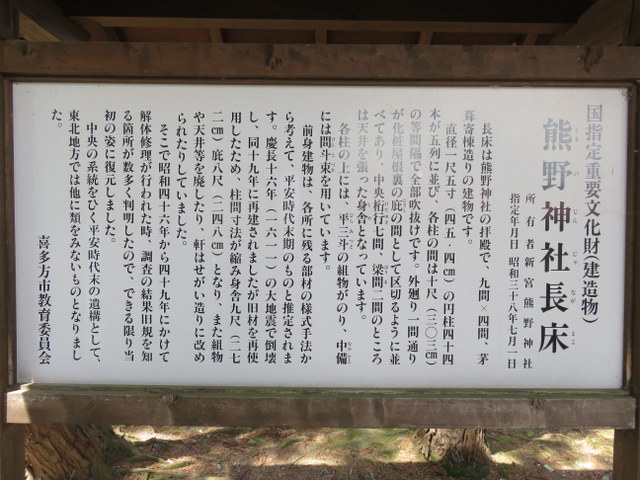 国指定重要文化財(建造物)
熊野神社長床
くまのじんじゃながとこ
所有者 新宮熊野神社
指定年月日 昭和三十八年七月一日
長床は熊野神社の拝殿で、九間×四間、茅
葺寄棟造りの建物です。
直径一尺五寸(四五・四㎝)の円柱四十四
本が五列に並び、各柱の間は十尺(三〇三㎝)
の等間隔で全部吹抜けです。外廻り一間通り
が化粧屋根裏の庇の間として区切るように並
べてあり、中央桁行七間、梁間二間のところ
は天井を張った身舎となっています。
各柱の上には、平三斗の組物がのり、中備
には間斗束を用いています。
前身建物は、各所に残る部材の様式手法か
ら考えて、平安時代末期のものと推定されま
す。慶長十六年(一六一一)の大地震で倒壊
し、同十九年に再建されましたが旧材を再使
用したため、柱間寸法が縮み身舎九尺(二七
二㎝)庇八尺(二四八㎝)となり、また組物
や天井等を廃したり、軒はせがい造りに改め
られたりしていました。
そこで昭和四十六年から四十九年にかけて
解体修理が行われた時、調査の結果旧規を知
る箇所が数多く判明したので、できる限り当
初の姿に復元しました。
中央の系統をひく平安時代末の遺構として、
東北地方では他に類をみないものとなりまし
た。
喜多方市教育委員会